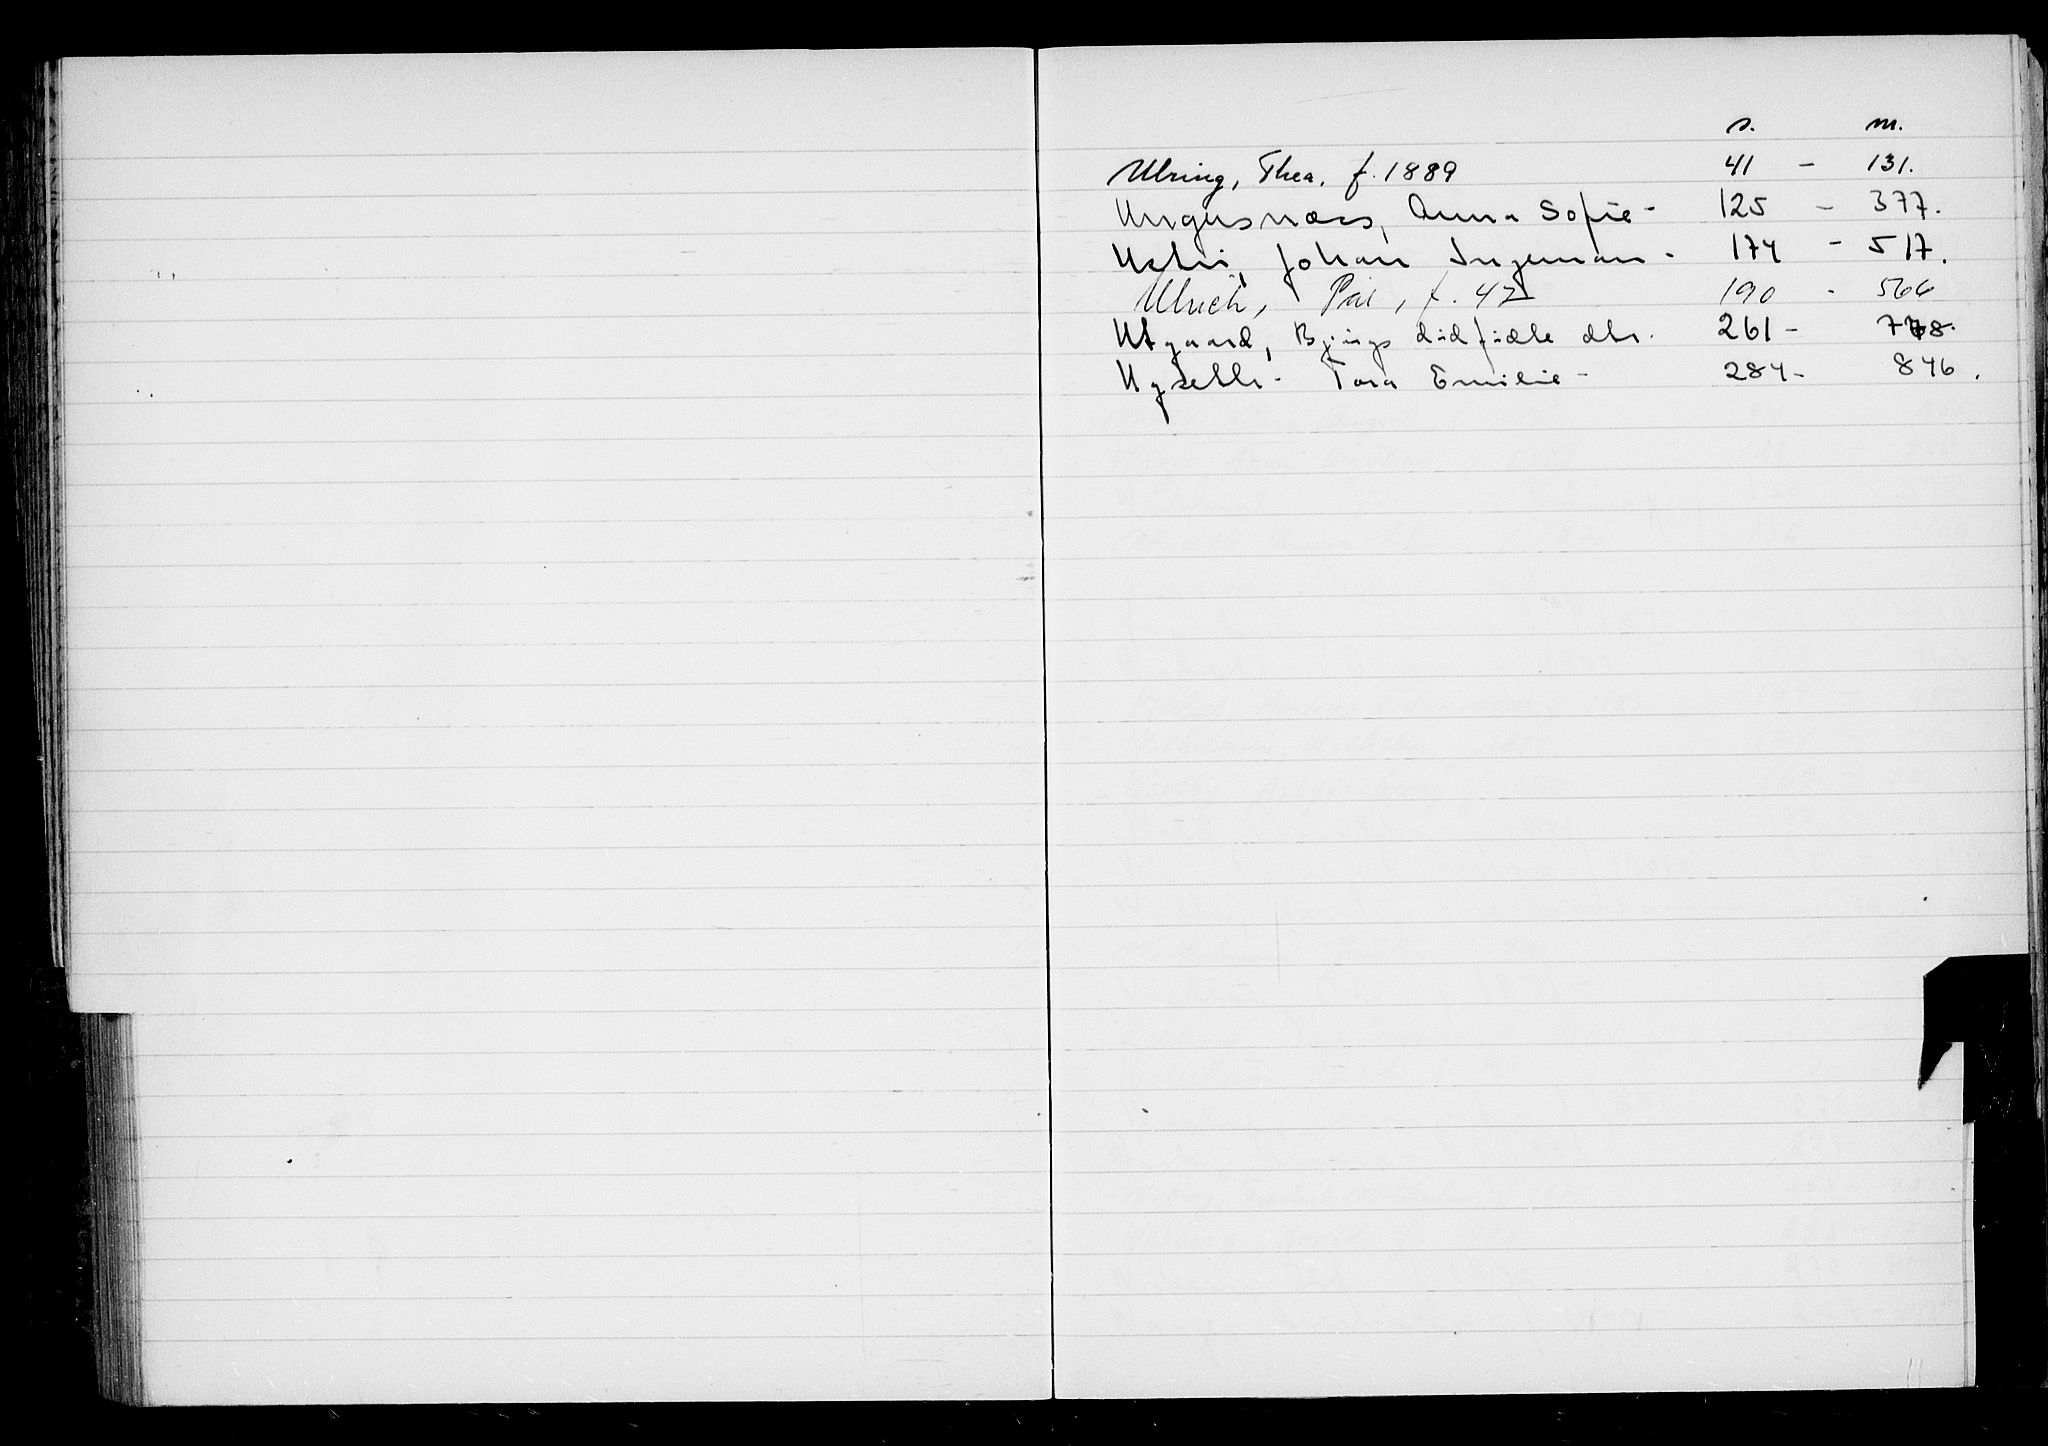 s. m.
Ulring, Thea. f. 1889 41 - 131.
Ungusnæss, Anna Sofie - 125 - 377.
Ustvi, Johan Ingeman - 174 - 517.
Ulrich, Pål, f. 47 190 - 566
Utgaard, Bjørgs dødfødte dtr. 261 - 778.
Uzelth - Tora Emilie - 284 - 846.